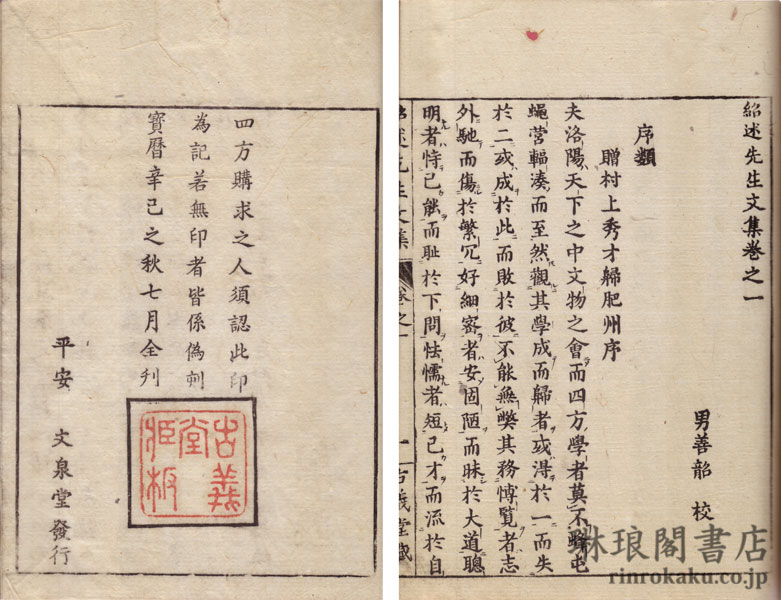 紹述先生文集卷之一
男善韶 校
序類
贈村上秀才歸肥州序
夫洛陽天下之中文物之會而四方學者莫不
蠅營輻湊而至然觀其學成而歸者或淂於一而失
於二或成於此而敗於彼不能無弊其務愽覧者志
外馳而傷於繁冗好細密者安固陋而昧於大道聰
明者恃己能而耻於下問怯懦者短己才而流於自
紹述先生文集
卷之一
一
古義堂藏
四方購求之人須認此印
為記若無印者皆係偽刻
寳曆辛巳之秋七月全刊
古義堂
平安 文泉堂發行
琳琅閣書店
rinrokaku.co.jp